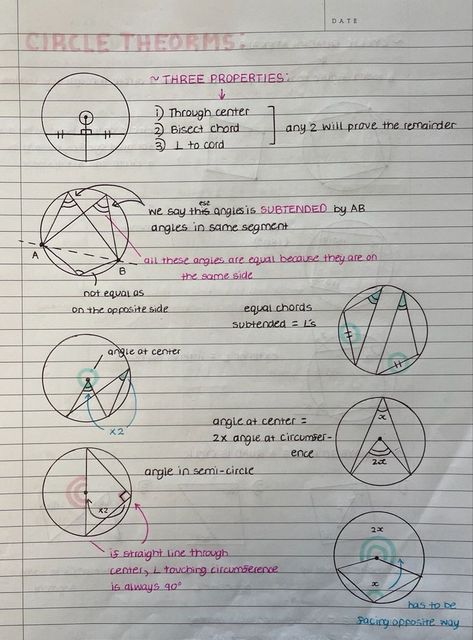 DATE
CIRCLE THEORMS:
~ THREE PROPERTIES:
1) Through center
2) Bisect chord
3) L to cord
any 2 will prove the remainder
we say this ese angles is SUBTENDED by AB
angles in same segment
A
B
all these angles are equal because they are on
the same side
not equal as
on the opposite side
equal chords
subtended = L's
angle at center
x2
angle at center =
2x angle at circumfer-
ence
x
2x
angle in semi-circle
x2
is straight line through
center, L touching circumference
is always 90°
2x
x
has to be
facing opposite way